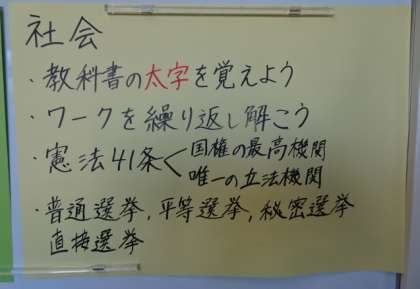 社会
・教科書の太字を覚えよう
・ワークを繰り返し解こう
・憲法41条<国権の最高機関
唯一の立法機関
・普通選挙,平等選挙,秘密選挙
直接選挙